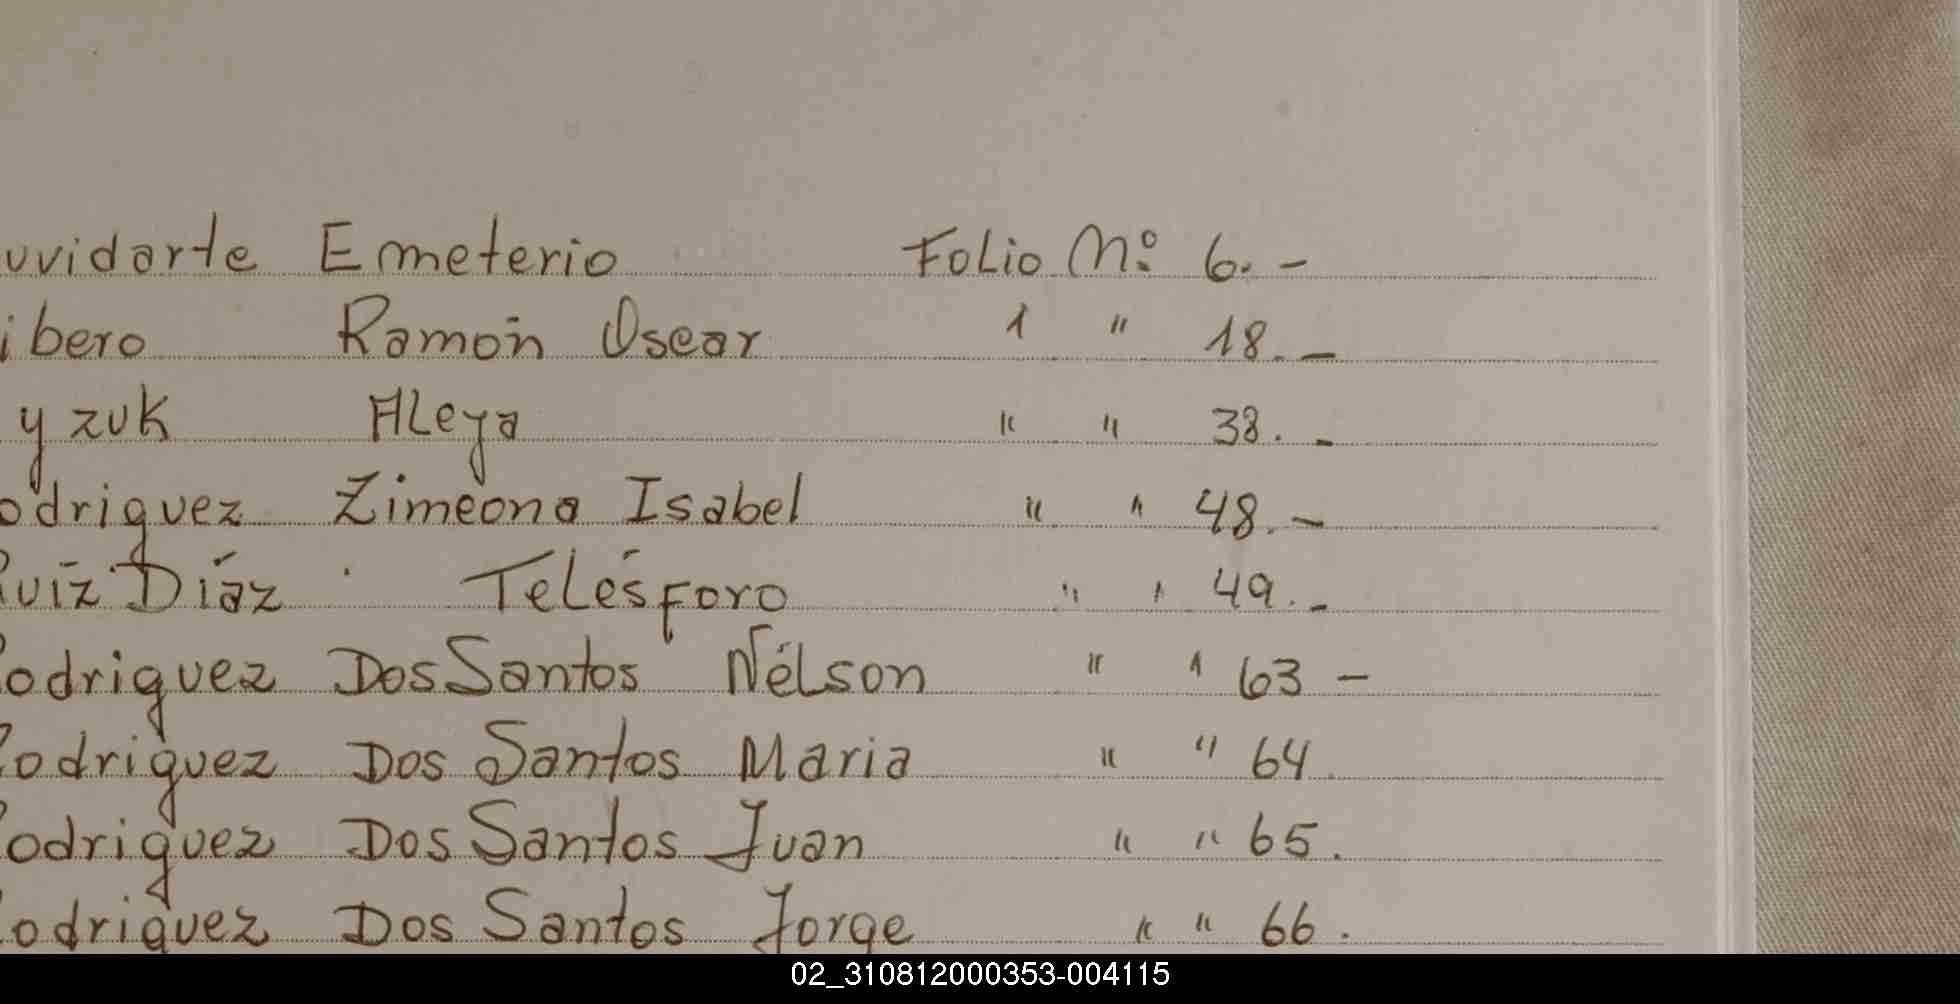 uvidarte Emeterio Folio Nº 6. -
ibero Ramón Oscar " " 18. -
yzuk Aleya " " 38. -
odriguez Zimeona Isabel " " 48. -
Ruíz Díaz Telésforo " " 49. -
Rodriguez Dos Santos Nélson " " 63 -
Rodriguez Dos Santos Maria " " 64.
Rodriguez Dos Santos Juan " " 65.
Rodriguez Dos Santos Jorge " " 66.
02_310812000353-004115